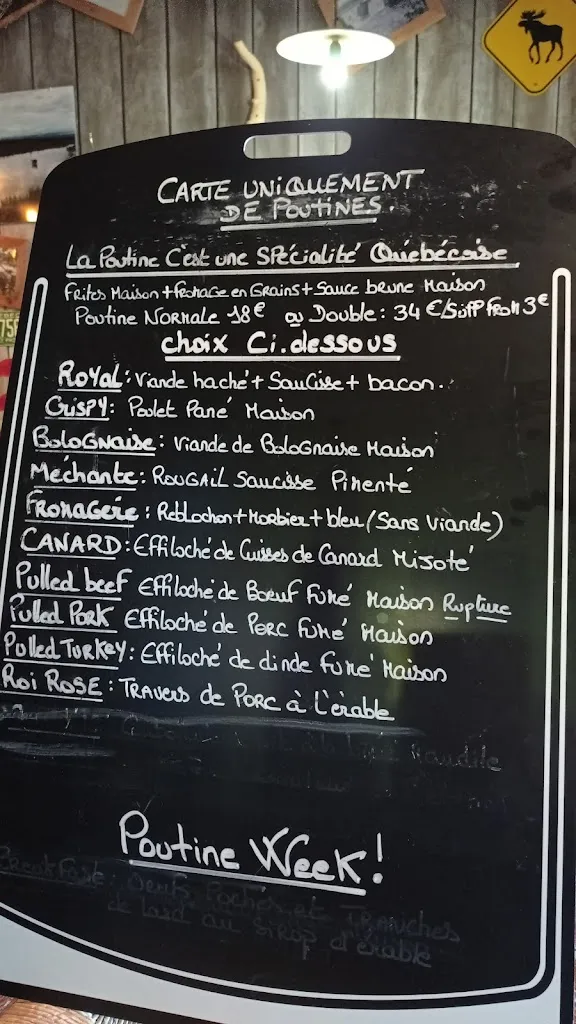 CARTE UNIQUEMENT
DE POUTINES.
La Poutine C'est une SPécialité Québécoise
Frites Maison + fromage en Grains + Sauce brune Maison
Poutine Normale 18€ ou Double: 34€/Supp From 3€
choix Ci.dessous
Royal: Viande haché + Saucisse + bacon..
Crispy: Poulet Pané Maison
Bolognaise: Viande de Bolognaise Maison
Méchante: Rougail Saucisse Pimenté
Fromagère: Reblochon + Morbier + bleu (Sans Viande)
CANARD: Effiloché de Cuisses de Canard Mijoté
Pulled beef Effiloché de Boeuf Fumé Maison Rupture
Pulled Pork Effiloché de Porc Fumé Maison
Pulled Turkey: Effiloché de dinde Fumé Maison
Roi Rose: Travers de Porc à L'érable
Maudite
Poutine Week!
Breakfast Oeufs Pochés et
de lard au Sirop d'érable